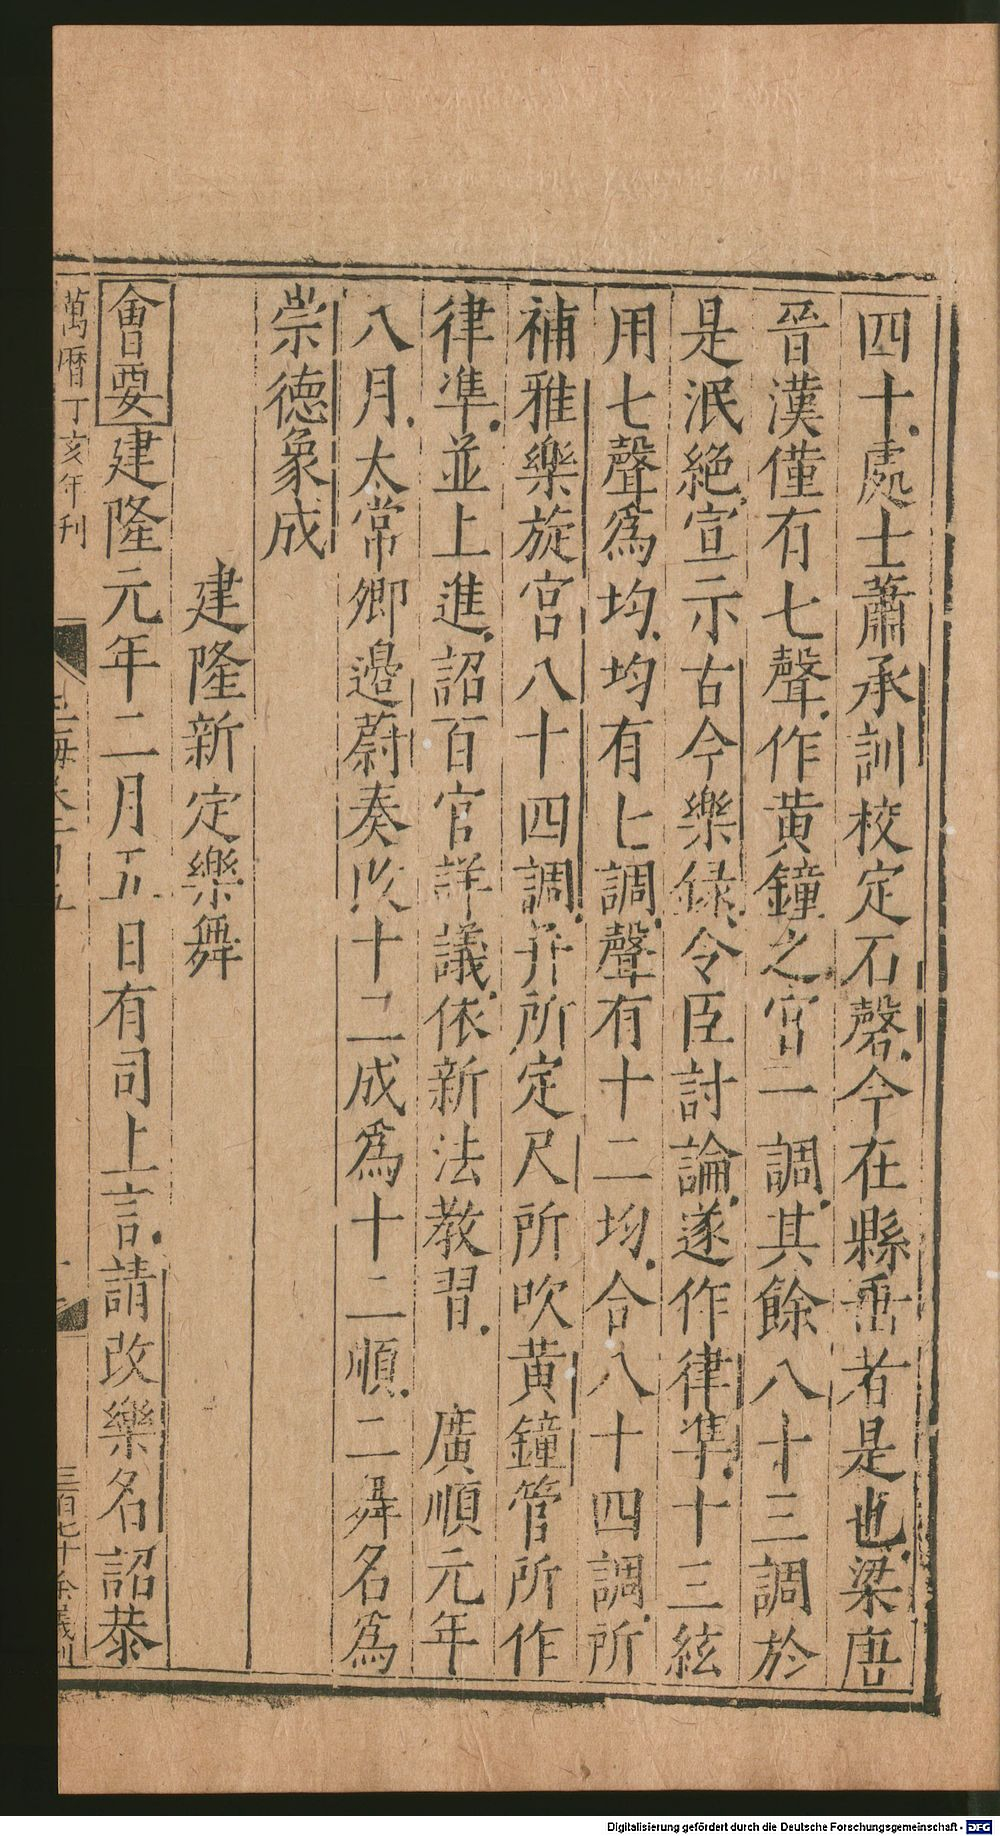 四十處士蕭承訓校定石磬今在縣垂者是也梁唐
晉漢僅有七聲作黃鐘之宮一調其餘八十三調於
是泯絕宣示古今樂錄令臣討論遂作律準十三絃
用七聲爲均均有七調聲有十二均合八十四調所
補雅樂旋宮八十四調幷所定尺所吹黃鐘管所作
律準並上進詔百官詳議依新法教習　廣順元年
八月太常卿邉蔚奏改十二成爲十二順二舞名爲
崇德象成
建隆新定樂舞
會要建隆元年二月五日有司上言請改樂名詔恭
萬曆丁亥年刊
三百七十
Digitalisierung gefördert durch die Deutsche Forschungsgemeinschaft - DFG